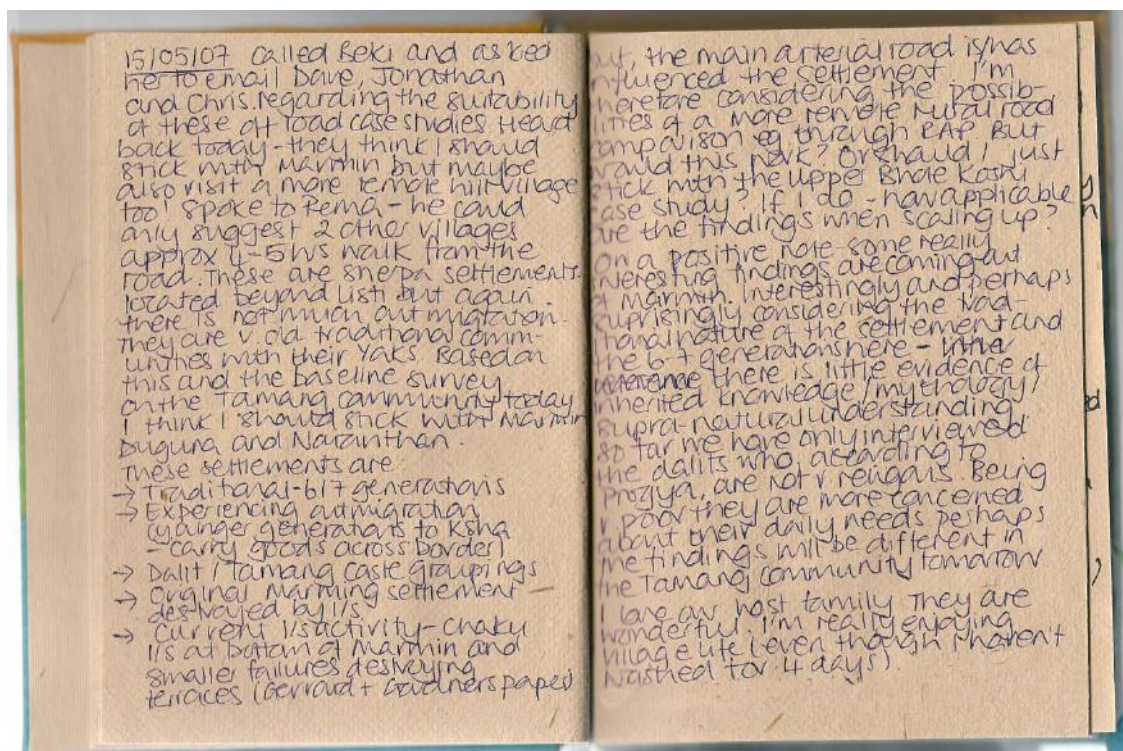 15/05/07 Called Beki and asked
her to email Dave, Jonathan
and Chris regarding the suitability
of these off road case studies. Heard
back today - they think I should
stick with Marmin but maybe
also visit a more remote hill village
too! Spoke to Rema - he could
only suggest 2 other villages
approx 4-5 hrs walk from the
road. These are sherpa settlements
located beyond Listi but again
there is not much outmigration.
They are v. old traditional comm-
unities with their Yaks. Based on
this and the baseline survey
on the Tamang community today
I think I should stick with Marmin
Duguna and Naranthan.
These settlements are
→ Traditional - 6/7 generations
→ Experiencing outmigration
(younger generations to Ksha
- carry goods across border)
→ Dalit / Tamang caste groupings
→ Original Marming settlement
destroyed by l/s
→ Current l/s activity - Chaku
l/s at bottom of Marmin and
smaller failures destroying
terraces (Gerrard + Gardners paper)
but, the main arterial road is/has
influenced the settlement. I'm
therefore considering the possib-
ilities of a more remote rural road
comparison eg through RAP. But
would this work? Or should I just
stick with the upper Bhote Koshi
case study? If I do - how applicable
are the findings when scaling up?
On a positive note - some really
interesting findings are coming out
of Marmin. Interestingly and perhaps
suprisingly considering the trad-
itional nature of the settlement and
the 6-7 generations here -
there is little evidence of
inherited knowledge / mythology /
supra-natural understanding.
So far we have only interviewed
the dalits who, according to
Progya, are not v religous. Being
v poor they are more concerned
about their daily needs perhaps
the findings will be different in
the Tamang community tomorrow
I love our host family They are
wonderful. I'm really enjoying
village life (even though I haven't
washed for 4 days).